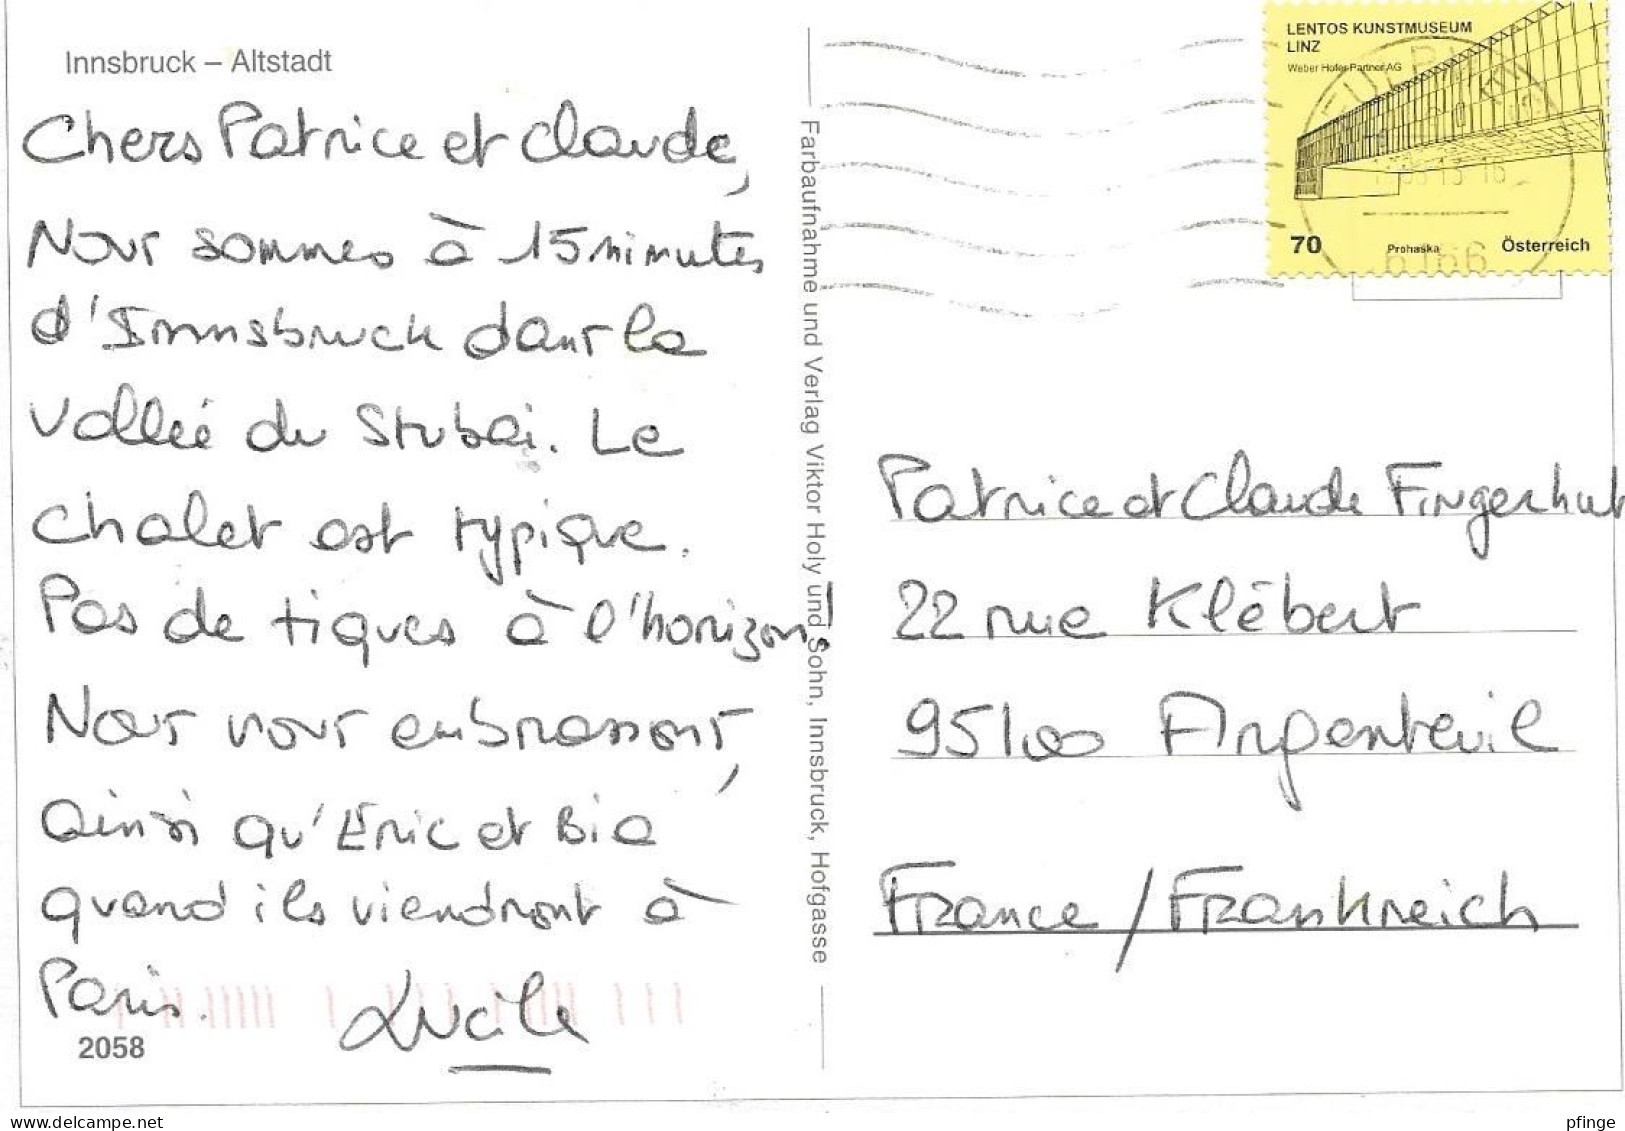 Innsbruck – Altstadt
Chers Patrice et Claude,
Nous sommes à 15 minutes
d'Innsbruck dans la
vallée du Stubai. Le
chalet est typique.
Pas de tiques à l'horizon!
Nous vous embrassons,
ainsi qu'Eric et Bia
quand ils viendront à
Paris.
Lucile
2058
Farbaufnahme und Verlag Viktor Holy und Sohn, Innsbruck, Hofgasse
LENTOS KUNSTMUSEUM
LINZ
Weber Hofer Partner AG
70
Prohaska
Österreich
6166
Patrice et Claude Fingerhut
22 rue Klébert
95100 Argenteuil
France / Frankreich
www.delcampe.net
pfinge